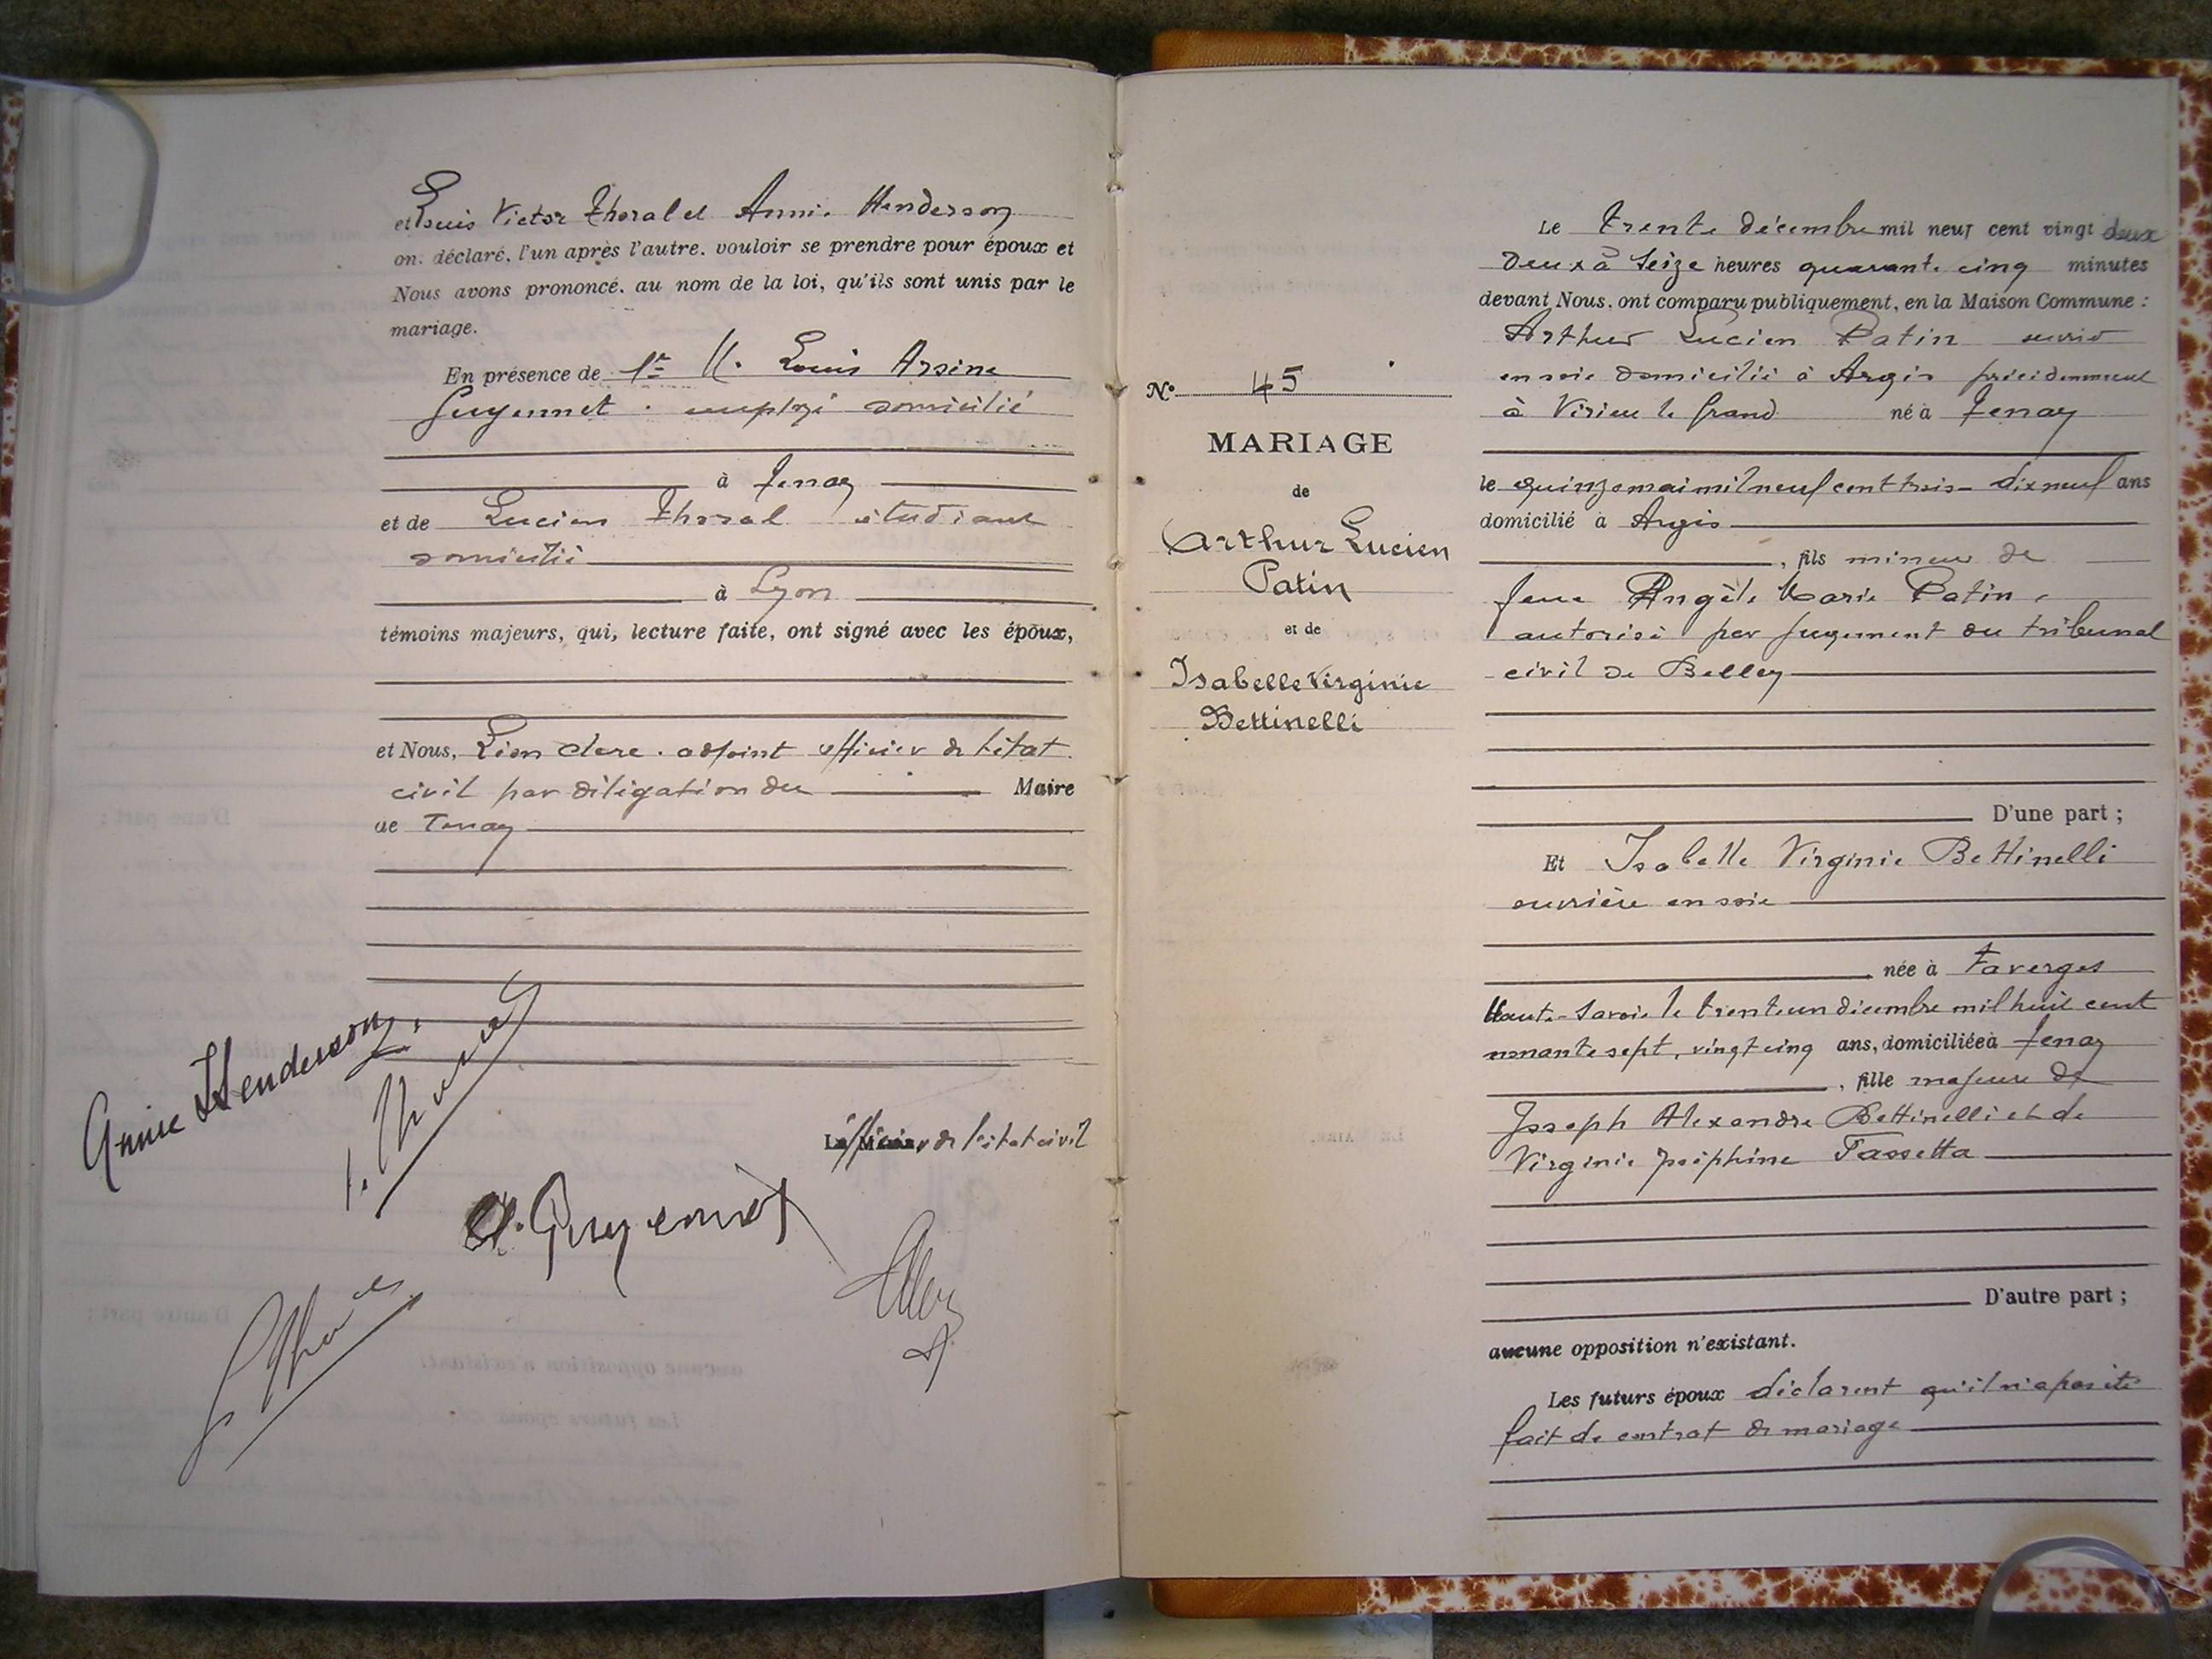 et Louis Victor Thoral et Annie Henderson
ont déclaré, l'un après l'autre, vouloir se prendre pour époux et
Nous avons prononcé, au nom de la loi, qu'ils sont unis par le
mariage.
En présence de 1º M. Louis Arsène
Guyennet. employé domicilié
à Tenay
et de Lucien Thoral étudiant
domicilié
à Lyon
témoins majeurs, qui, lecture faite, ont signé avec les époux,
et Nous, Léon Clerc. adjoint officier de l'état
civil par délégation du Maire
de Tenay
L'officier de l'état civil
Annie Henderson
L. Thoral
A. Guyennet
L Thoral
Nº 45
MARIAGE
de
Arthur Lucien
Patin
et de
Isabelle Virginie
Bettinelli
Le trente décembre mil neuf cent vingt deux
deux à seize heures quarante cinq minutes
devant Nous, ont comparu publiquement, en la Maison Commune :
Arthur Lucien Patin ouvrier
en soie domicilié à Argis précédemment
à Virieu le Grand né à Tenay
le quinze mai mil neuf cent trois - dix neuf ans
domicilié à Argis
, fils mineur de
feue Angèle Marie Patin,
autorisé par jugement du tribunal
civil de Belley
D'une part ;
Et Isabelle Virginie Bettinelli
ouvrière en soie
née à Faverges
Haute-Savoie le trente un décembre mil huit cent
nonante sept, vingt cinq ans, domiciliée à Tenay
, fille majeure de
Joseph Alexandre Bettinelli et de
Virginie Joséphine Fassetta
D'autre part ;
aucune opposition n'existant.
Les futurs époux déclarent qu'il n'a pas été
fait de contrat de mariage